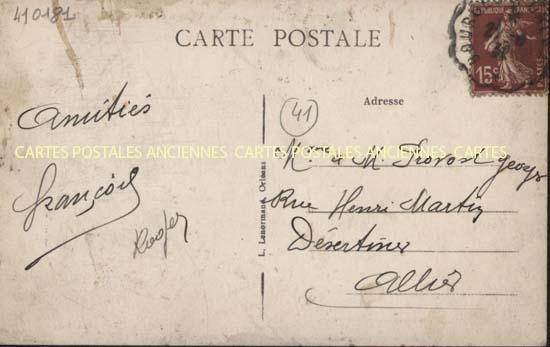 410181
CARTE POSTALE
REPUBLIQUE FRANCAISE
15c
POSTES
Adresse
41
Amitiés
CARTES POSTALES ANCIENNES CARTES POSTALES ANCIENNES CARTES
M & M Provost Georges
François
Roger
Rue Henri Martin
Désertines
Allier
L. Lenormand, Orléans